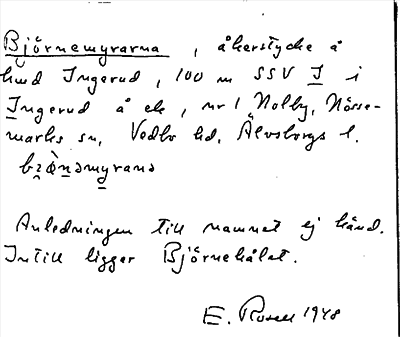 Björnemyrarna, åkerstycke å
hmd Ingerud, 100 m SSV I i
Ingerud å ek, nr 1 Nolby, Nösse-
marks sn, Vedbo hd, Älvsborgs l.
Anledningen till namnet ej känd.
Intill ligger Björnehålet.
E. Rosell 1948